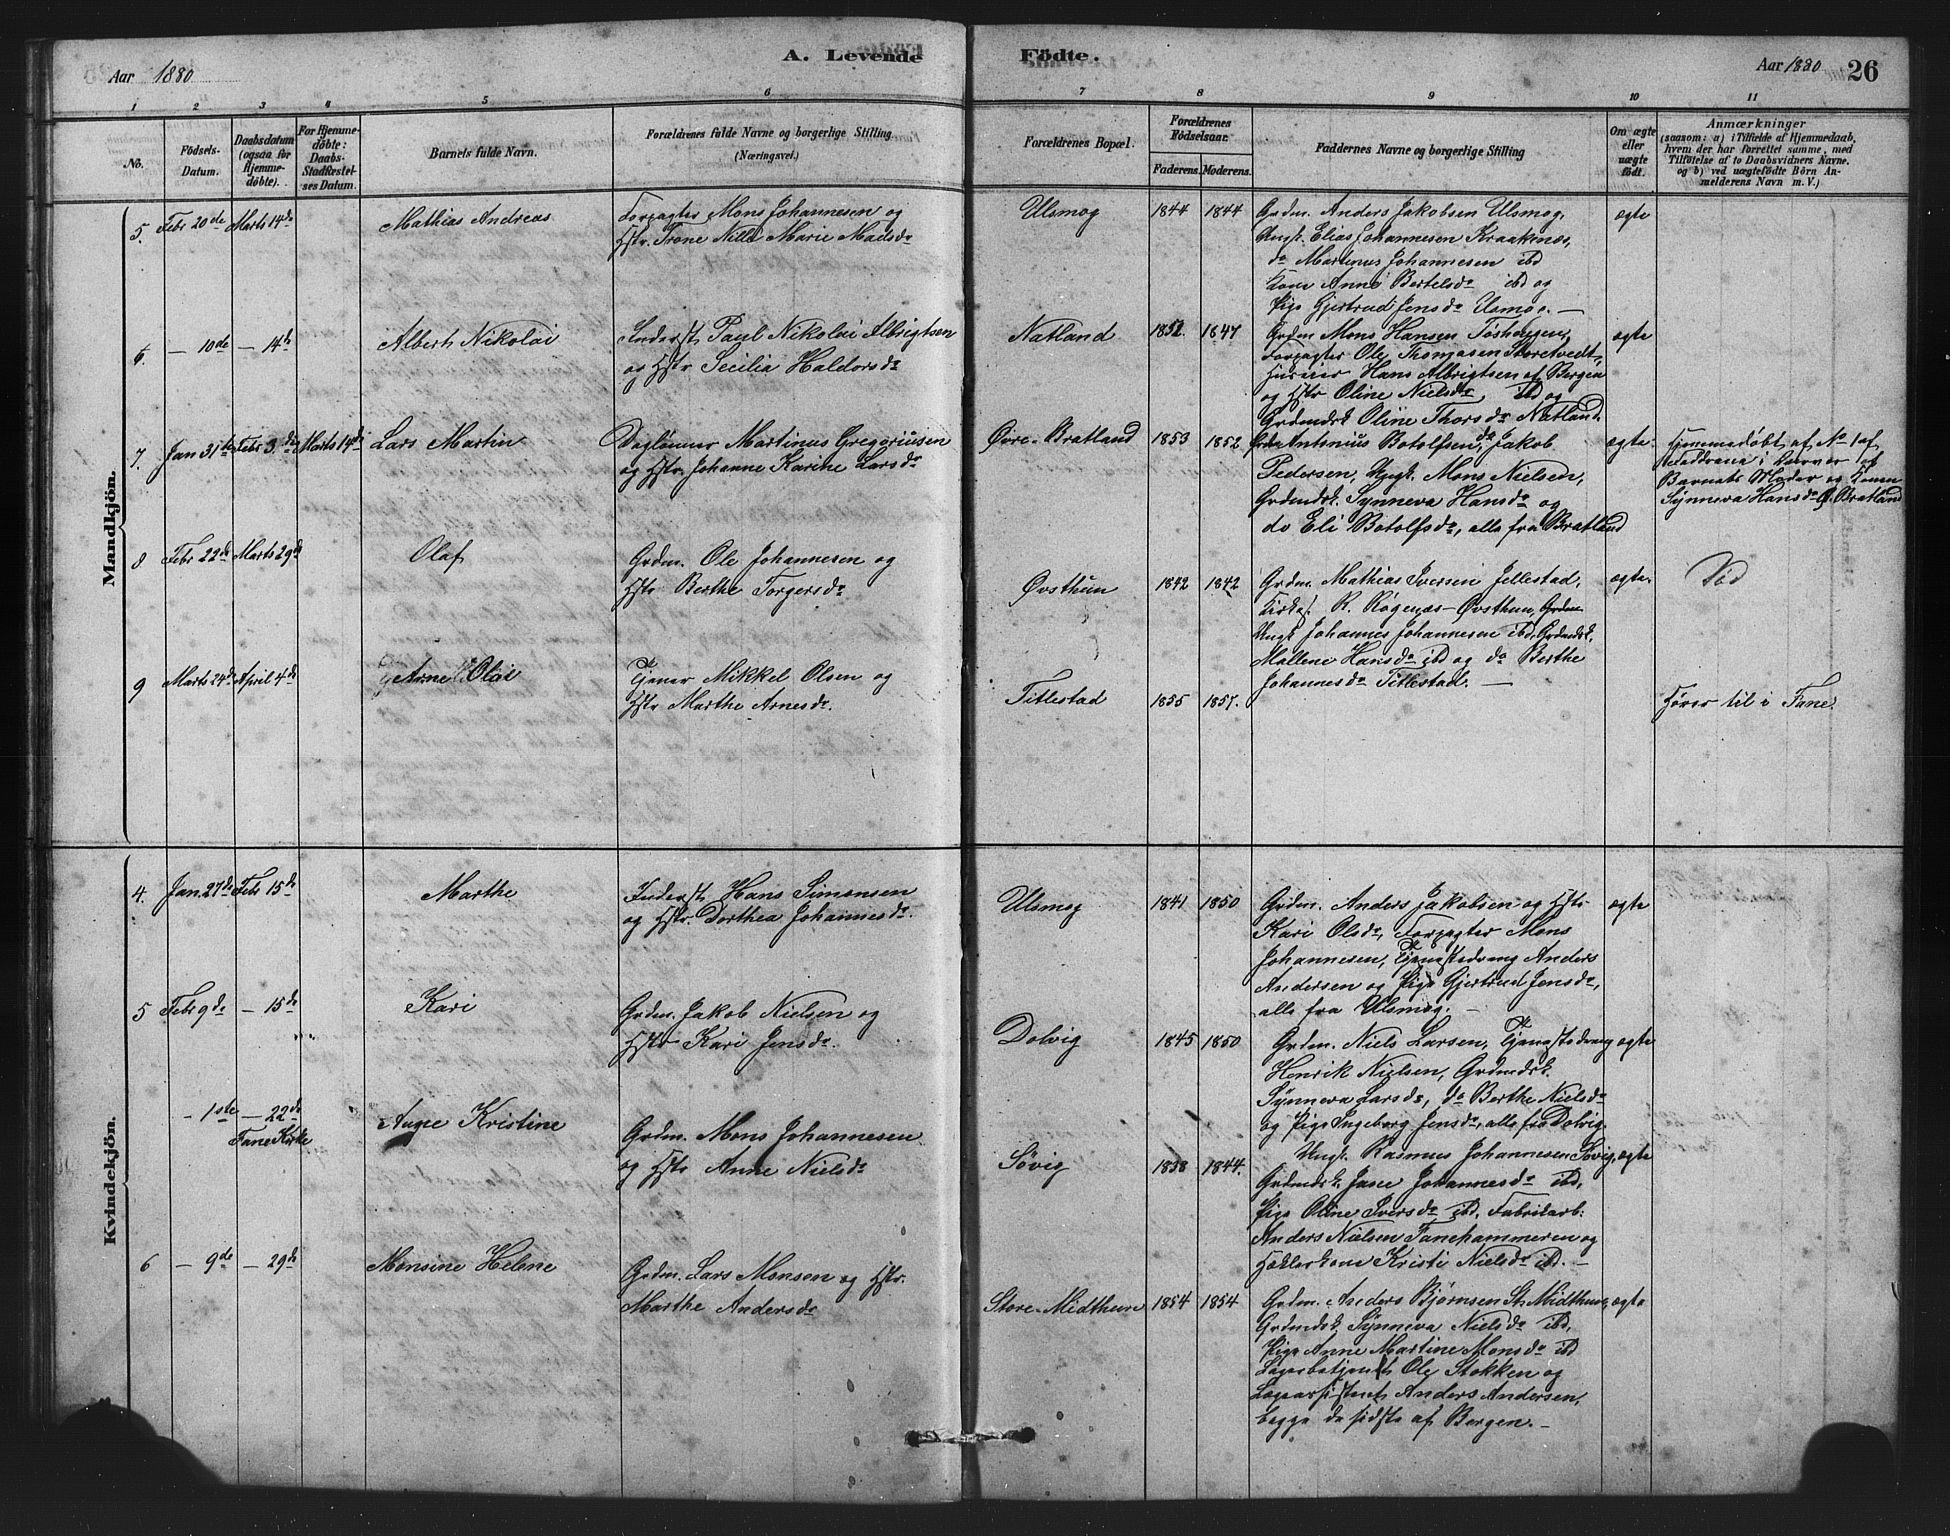 Aar 1880
A. Levende
Födte.
Aar 1880
26
1 2 3 4 5 6 7 8 9 10 11
No.
Födsels-
Datum.
Daabsdatum
(ogsaa for
Hjemme-
döbte).
For Hjemme-
döbte:
Daabs-
Stadfæstel-
ses Datum.
Barnets fulde Navn.
Forældrenes fulde Navne og borgerlige Stilling
(Næringsvei.)
Forældrenes Bopæl.
Forældrenes
Födselsaar.
Faderens. Moderens.
Faddernes Navne og borgerlige Stilling
Om ægte
eller
uægte
födt.
Anmærkninger
(saasom: a) i Tilfælde af Hjemmedaab,
hvem der har forrettet samme, med
Tilföielse af to Daabsvidners Navne.
og b) ved uægtefödte Börn An-
melderens Navn m. V.)
Mandkjön.
5. Febr 20de Marts 14de
Mathias Andreas
Forpagter Mons Johannesen og
Hstr Trone Nille Marie Madsdr
Ulsmog 1844 1844
Grdm. Anders Jakobsen Ulsmog,
Ungk. Elias Johannesen Kraakenæs,
do Martinus Johannesen ibd
Kone Anne Bertelsdr ibd og
Pige Gjertrud Jensdr Ulsmog. —
ægte
6. — 10de — 14de
Albert Nikolai
Inderst Paul Nikolai Albrigtsen
og Hstr Secilia Haldorsdr
Natland 1852. 1847
Grdm Mons Hansen
Forpagter Ole Thomasen Storetvedt,
Huseier Hans Albrigtsen af Bergen
og Hstr Oline Nielsdr ibd og
Grdmdsk Oline Thorsdr Natland.
ægte
7. Jan 31te Febr 3de Marts 14de
Lars Martin
Daglönner Martinus Gregoriusen
og Hstr. Johanne Karine Larsdr
Øvre-Bratland 1853 1852
Grdm Antonius Botolfsen, do Jakob
Pedersen, Ungk. Mons Nielsen,
Grdmdsk. Synneva Hansdr og
do Eli Botolfsdr, alle fra Bratland
ægte.
Hjemmedøbt af No 1 af
Faddrene i Nærvær af
Barnets Moder og Konen
Synneva Hansdr Ø. Bratland
8 Febr 22de Marts 29de
Olaf
Grdm. Ole Johannesen og
Hstr Berthe Torgersdr
Øvsthun 1842 1842
Grdm. Mathias Iversen Jellestad,
Kirkes. R. Røgenæs-Øvsthun,
Ungk Johannes Johannesen ibd, Grdmdsk.
Mallene Hansdr ibd og do Berthe
Johannesdr Titlestad. —
ægte.
9 Marts 24de April 4de
Arne Olai
Tjener Mikkel Olsen og
Hstr Marthe Arnesdr.
Titlestad 1855 1857.
Hører til i Fane.
Kvindekjön.
4. Jan. 27de Febr 15de
Marthe
Inderst Hans Simonsen
og Hstr. Dorthea Johannesdr.
Ulsmog 1841 1850
Grdm. Anders Jakobsen og Hstr
Kari Olsdr, Forpagter Mons
Johannesen, Tjenestedreng Anders
Andersen og Pige Gjertrud Jensdr,
alle fra Ulsmog. —
ægte
5 Febr 9de — 15de
Kari
Grdm. Jakob Nielsen og
Hstr Kari Jensdr.
Dolvig 1845 1850
Grdm. Niels Larsen, Tjenestedreng
Henrik Nielsen, Grdmdsk.
Synneva Larsdr, do Berthe Nielsdr
og Pige Ingeborg Jensdr, alle fra Dolvig.
ægte
- 1ste — 22de
Fane Kirke
Kristine
Grdm. Mons Johannesen
og Hstr Anne Nielsdr
Søvig 1838 1844.
Ungk. Rasmus Johannesen Søvig,
Grdmdsk. Johannesdr ibd,
Pige Oline Iversdr ibd, Fabrikarb.
Anders Nielsen Fanehammeren og
Kristi Nielsdr ibd. —
ægte
6 — 9de — 29de
Monsine Helene
Grdm. Lars Monsen og Hstr.
Marthe Andersdr
Store-Midthun 1854 1854
Grdm. Anders Bjørnsen St. Midthun,
Grdmdsk Synneva Nielsdr ibd,
Pige Anne Martine Monsdr ibd
Ole Stokken og
Anders Andersen,
begge de sidste af Bergen. —
ægte